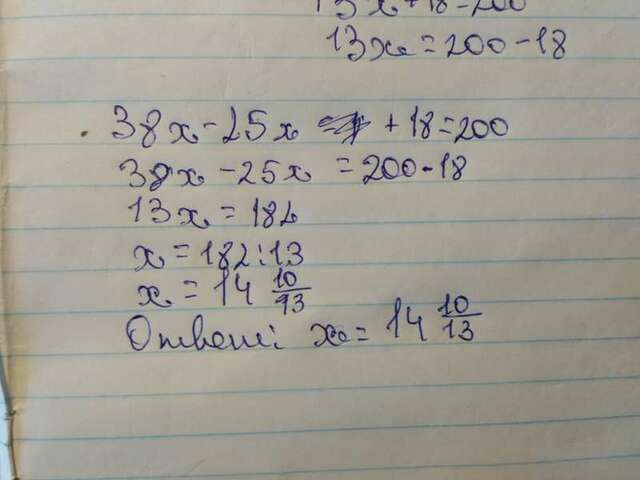 13x+18=200
13x=200-18
38x-25x +18=200
38x-25x =200-18
13x=182
x=182:13
x=14 10/13
Ответ: x=14 10/13